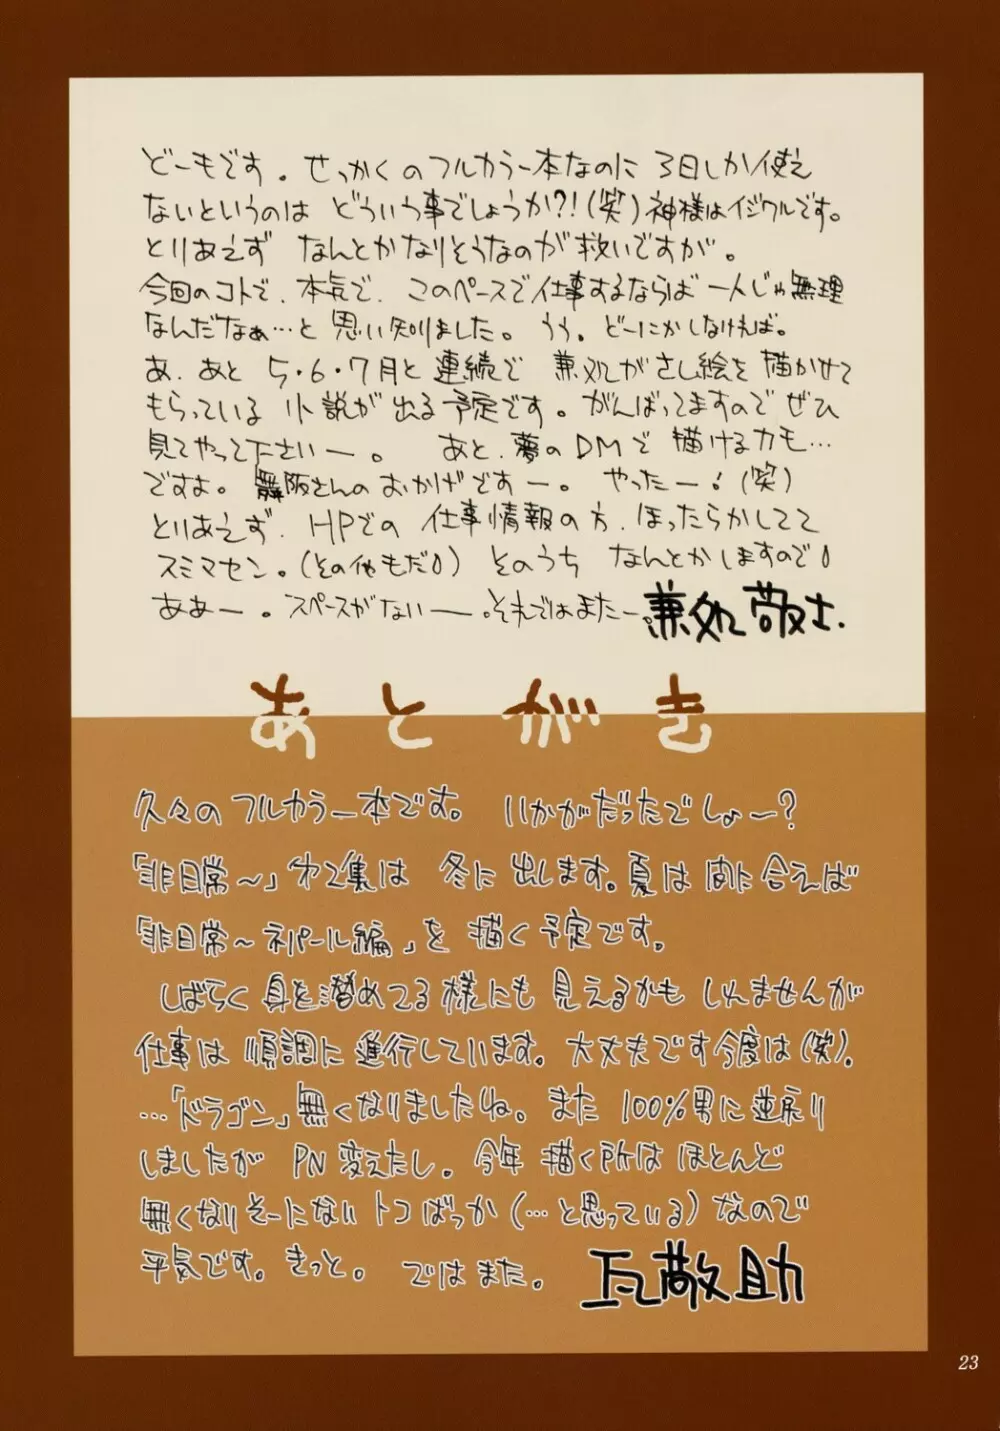 どーもです。せっかくのフルカラー本なのに3日しか使え
ないというのは どういう事でしょうか?!(笑)神様はイジワルです。
とりあえず なんとかなりそうなのが救いですが。
今回のコトで、本気で、このペースで仕事するならば 一人じゃ無理
なんだなぁ…と思い知りました。うぅ。どーにかしなければ。
あ、あと 5・6・7月と連続で 兼処がさし絵を描かせて
もらっている 小説が出る予定です。がんばってますのでぜひ
見てやって下さいー。 あと、夢のDMで描けるカモ…
ですよ。舞阪さんのおかげですー。やったー!(笑)
とりあえず、HPでの 仕事情報の方、ほったらかしてて
スミマセン。(その他もだ) そのうち なんとかしますので
ああー。スペースがないー。それではまたー。兼処敬士.
あとがき
久々のフルカラー本です。いかがだったでしょー?
「非日常〜」第2集は 冬に出します。夏は間に合えば
「非日常〜ネパール編」を 描く予定です。
しばらく身を潜めてる様にも見えるかもしれませんが
仕事は順調に進行しています。大丈夫です今度は(笑)。
…「ドラゴン」無くなりましたね。また100%男に逆戻り
しましたが PN変えたし。今年描く所はほとんど
無くなりそーにないトコばっか(…と思っている)なので
平気です。きっと。 ではまた。 瓦敬助
23